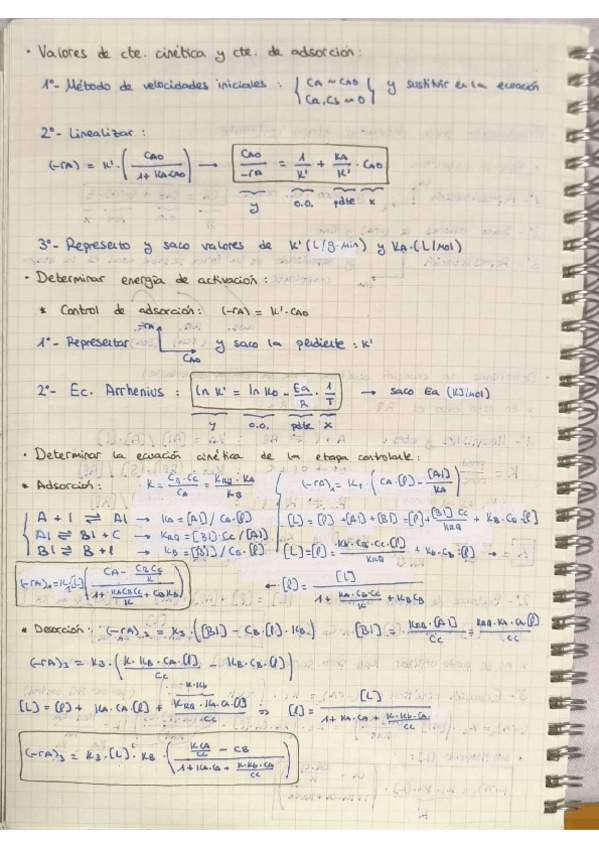 · Valores de cte. cinética y cte. de adsorción:
1º- Método de velocidades iniciales: { CA ≈ CA0 CR, CS ≈ 0 } y sustituir en la ecuación
2º- Linealizar:
(-rA) = K'·(CA0 / 1 + KA·CA0) → CA0/-rA = 1/K' + KA/K' · CA0
y o.o. pdte x
3º- Represento y saco valores de K' (L/g·min) y KA·(L/mol)
· Determinar energía de activación:
* Control de adsorción: (-rA) = K'·CA0
1º- Representar -rA CA0 y saco la pendiente: K'
2º- Ec. Arrhenius: ln K' = ln K0 - Ea/R · 1/T → saco Ea (KJ/mol)
y o.o. pdte x
· Determinar la ecuación cinética de la etapa controlante:
* Adsorción: K = CB·CC/CA = KRQ·KA/KB (-rA)1 = K1·(CA·[l] - [Al]/KA)
A + l ⇌ Al → KA = [Al] / CA·[l] [L] = [l] + [Al] + [Bl]
Al ⇌ Bl + C → KRQ = [Bl]·CC / [Al]
Bl ⇌ B + l → KB = [Bl] / CB·[l]
← [l] = [L] / 1 + KA·CB·CC/K + KB·CB
* Desorción: (-rA)3 = K3·([Bl] - CB·[l]·KB) [Bl] = KRQ·[Al]/CC = KRQ·KA·CA·[l]/CC
(-rA)3 = K3·(K·KB·CA·[l]/CC - KB·CB·[l])
K·KB
[L] = [l] + KA·CA·[l] + KRQ·KA·CA·[l]/CC ⇒ [l] = [L] / 1 + KA·CA + K·KB·CA/CC
(-rA)3 = K3·[L]·KB·(K·CA/CC - CB / 1 + KA·CA + K·KB·CA/CC)